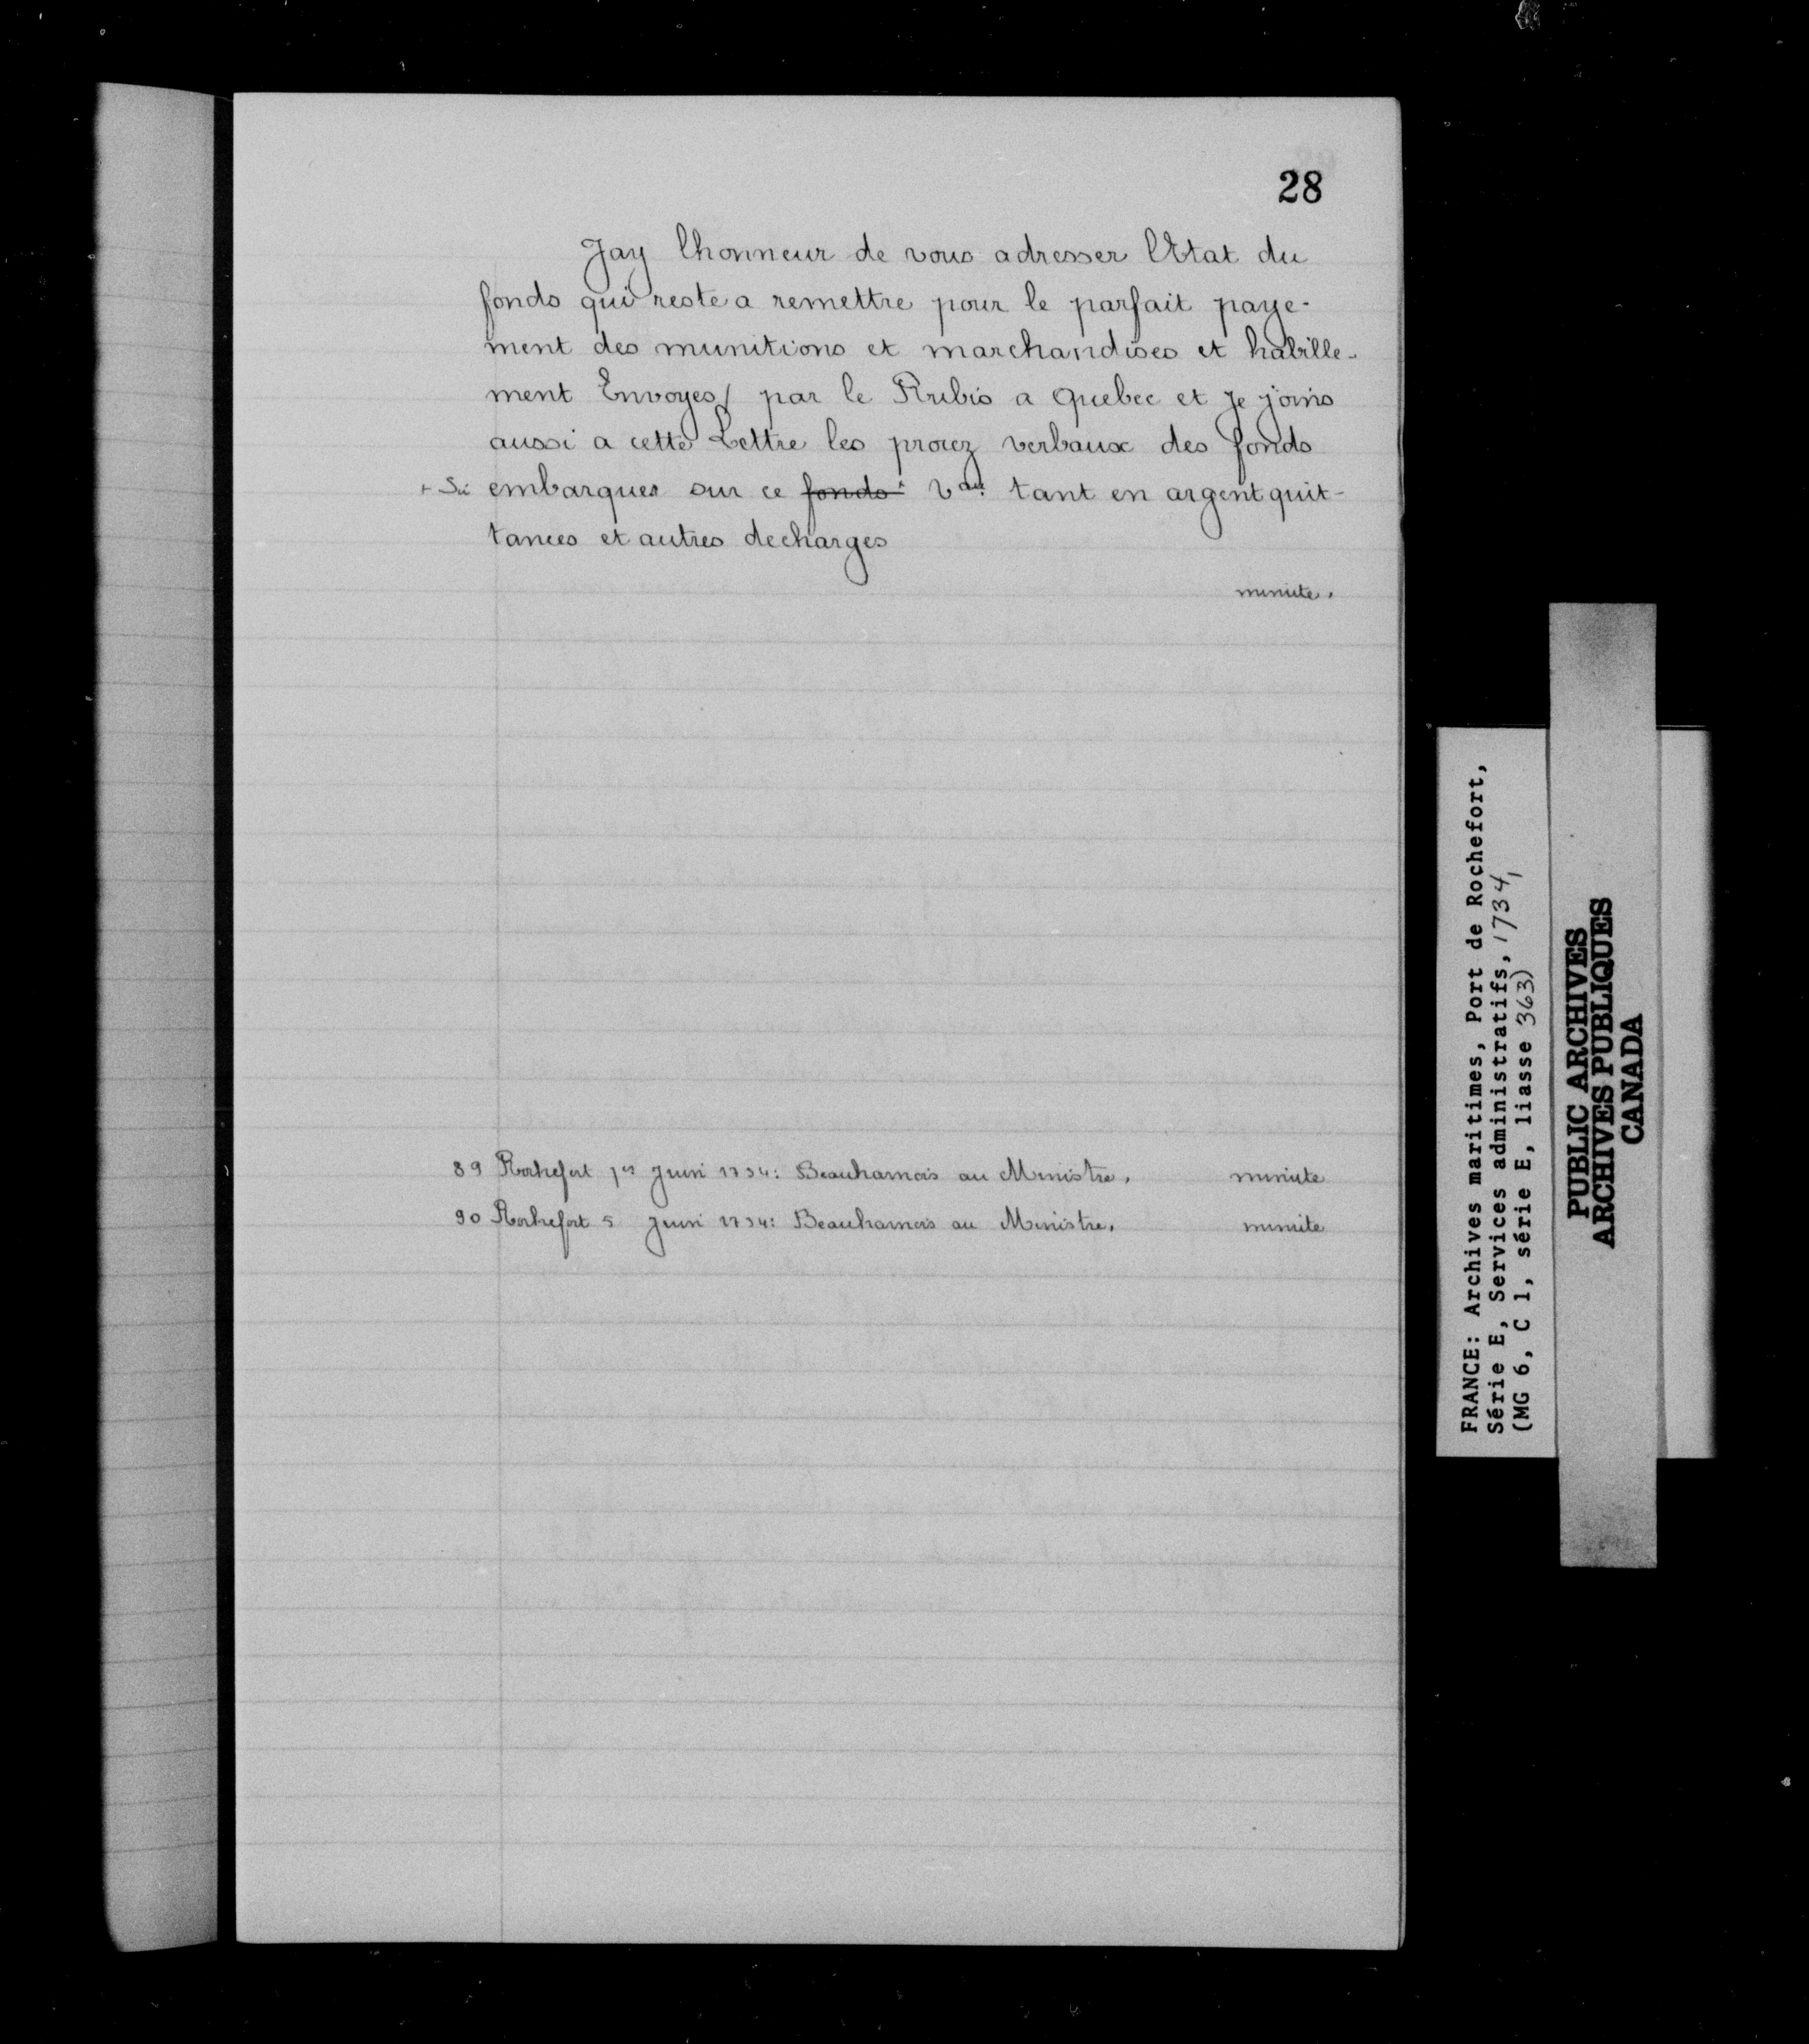 28
Jay lhonneur de vous adresser l'Etat du
fonds qui reste a remettre pour le parfait paye-
ment des munitions et marchandises et habille-
ment Envoyes/ par le Rubis a Quebec et Je joins
aussi a cette Lettre les procez verbaux des fonds
+ Sic embarques sur ce fonds + vau tant en argent quit-
tances et autres decharges
minute.
89 Rochefort 1er Juin 1734: Beauharnois au Ministre. minute
90 Rochefort 5 Juin 1734: Beauharnois au Ministre. minute
FRANCE: Archives maritimes, Port de Rochefort,
Série E, Services administratifs, 1734,
(MG 6, C 1, série E, liasse 363)
PUBLIC ARCHIVES
ARCHIVES PUBLIQUES
CANADA